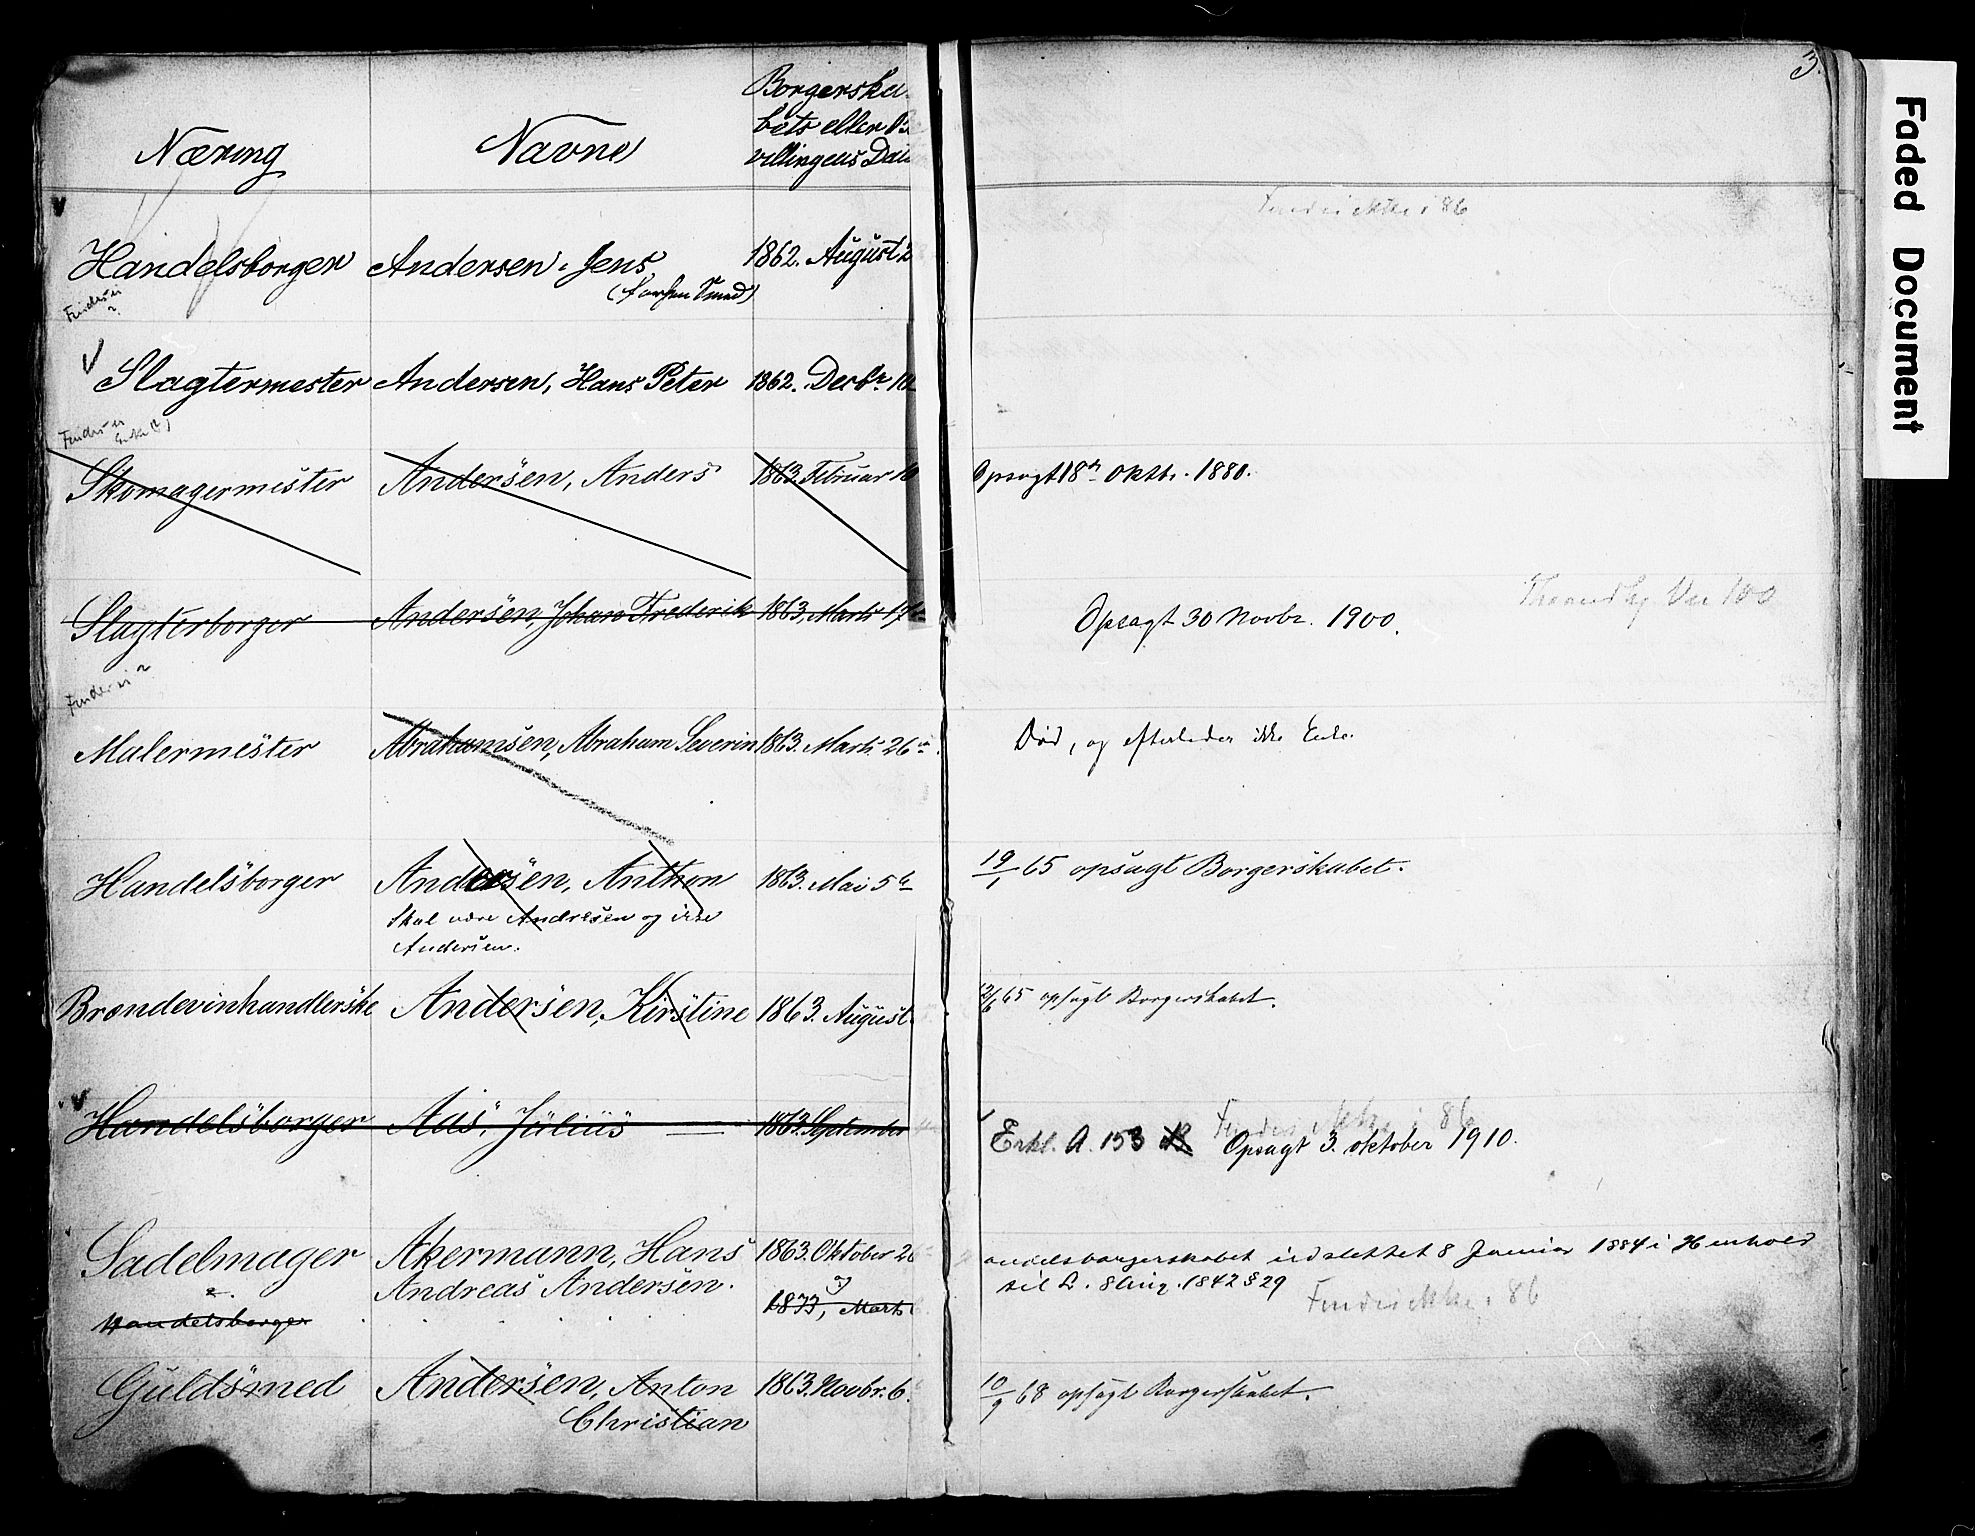 3.
Faded Document
Næring
Navne
Borgerska-
bets eller Be
villingens Dat
Handelsborger Andersen, Jens 1862. August 2
Findes ei
Findes ikke i 86
Slagtermester Andersen, Hans Peter 1862. Decbr 10
Findes ei
Skomagermester Andersen, Anders 1863. Februar 10 Opsagt 18de Oktbr. 1880.
Slagterborger Andersen, Johan Frederik 1863. Marts 17 Opsagt 30 Novbr. 1900.
Findes ei
Malermester Abrahamsen, Abraham Severin 1863. Marts 26 Død, og efterlader ikke Enke.
Handelsborger Andersen, Anthon 1863. Mai 5te 19/1 65 opsagt Borgerskabet.
Skal være Andresen og ikke
Andersen.
Brændevinhandlerske Andersen, Kirstine 1863. August 12/6 65 opsagt Borgerskabet.
Handelsborger Aas, Julius 1863. September
Findes ikke i 86
Erkl. A. 153 Opsagt 3. oktober 1910.
Sadelmager Akermann, Hans 1863. Oktober 26 andelsborgerskabet udslettet 8 Januar 1884 i Henhold
Andreas Andersen. og til L. 8 Aug. 1842 § 29
Handelsborger 1877, Marts
Findes ikke i 86
Guldsmed Andersen, Anton 1863. Novbr. 6. 10/9 68 opsagt Borgerskabet.
Christian